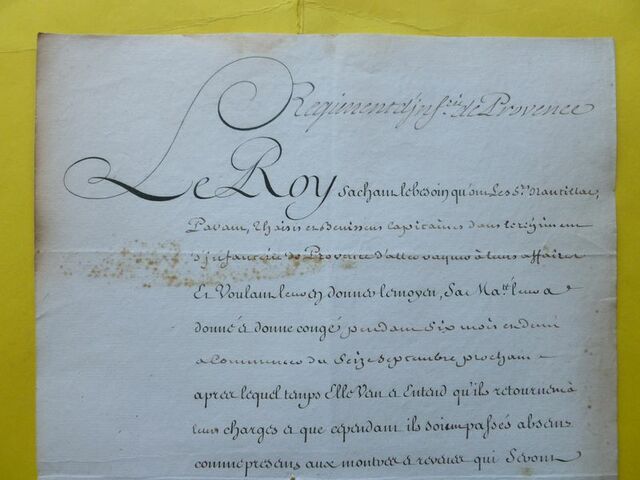 Regiment d'jnf.rie de Provence
Le Roy sachant le besoin qu'ont Les Srs
Pavant, Thaisis et capitaines dans le regiment
d'jnfanterie de Provence d'aller vaquer à leurs affaires
Et Voulant leur en donner le moyen, Sa Maté leur a
donné et donne congé pendant Six mois et demi
a Commencer du Seize Septembre prochain
apres lequel temps Elle Veut et Entend qu'ils retournent à
leurs charges et que cependant ils soient passés absens
comme presens aux montres et reveues qui Seront